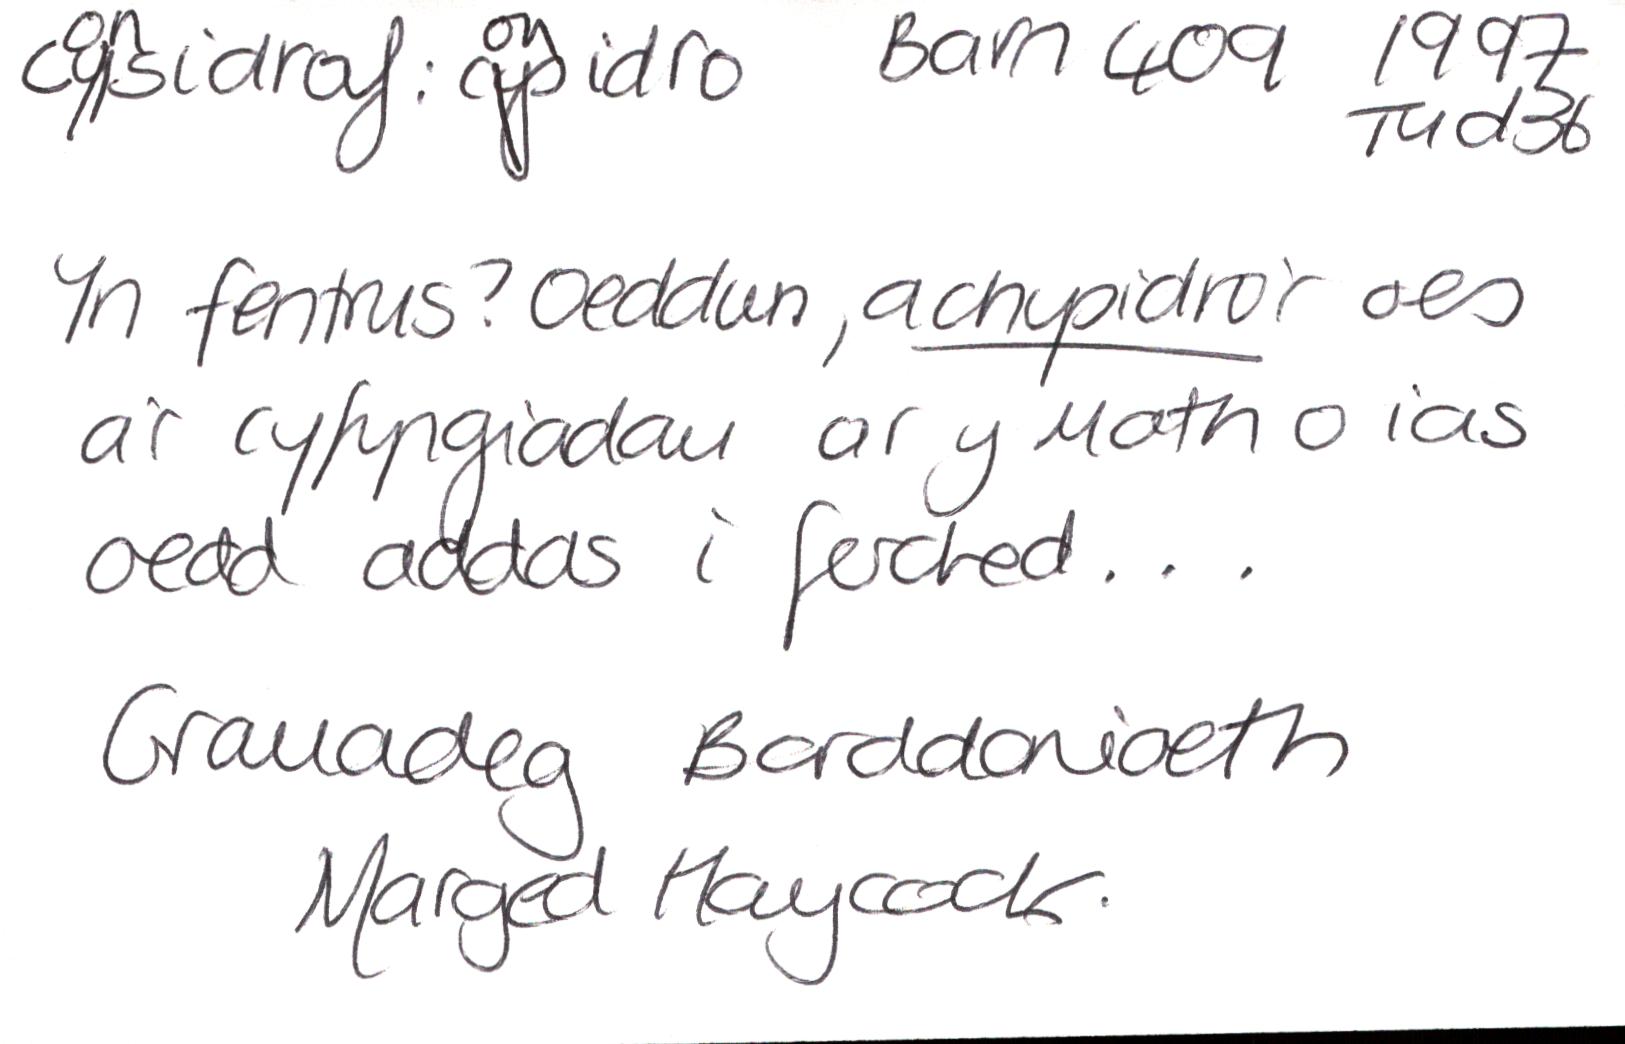 considraf: considro Barn 409 1997
Tud 36
Yn fentrus? Oeddun, a chysidro'r oes
a'r cyfyngiadau ar y math o ias
oedd addas i ferched...
Gramadeg Barddoniaeth
Marged Haycock.